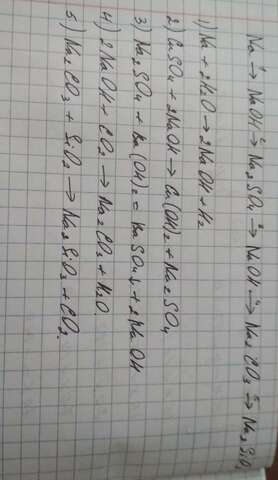 Na ¹→ NaOH ²→ Na₂SO₄ ³→ NaOH ⁴→ Na₂CO₃ ⁵→ Na₂SiO₃
1) Na + 2H₂O → 2NaOH + H₂
2) CuSO₄ + 2NaOH → Cu(OH)₂ + Na₂SO₄
3) Na₂SO₄ + Ba(OH)₂ = BaSO₄↓ + 2NaOH
4) 2NaOH + CO₂ → Na₂CO₃ + H₂O.
5.) Na₂CO₃ + SiO₂ → Na₂SiO₃ + CO₂.